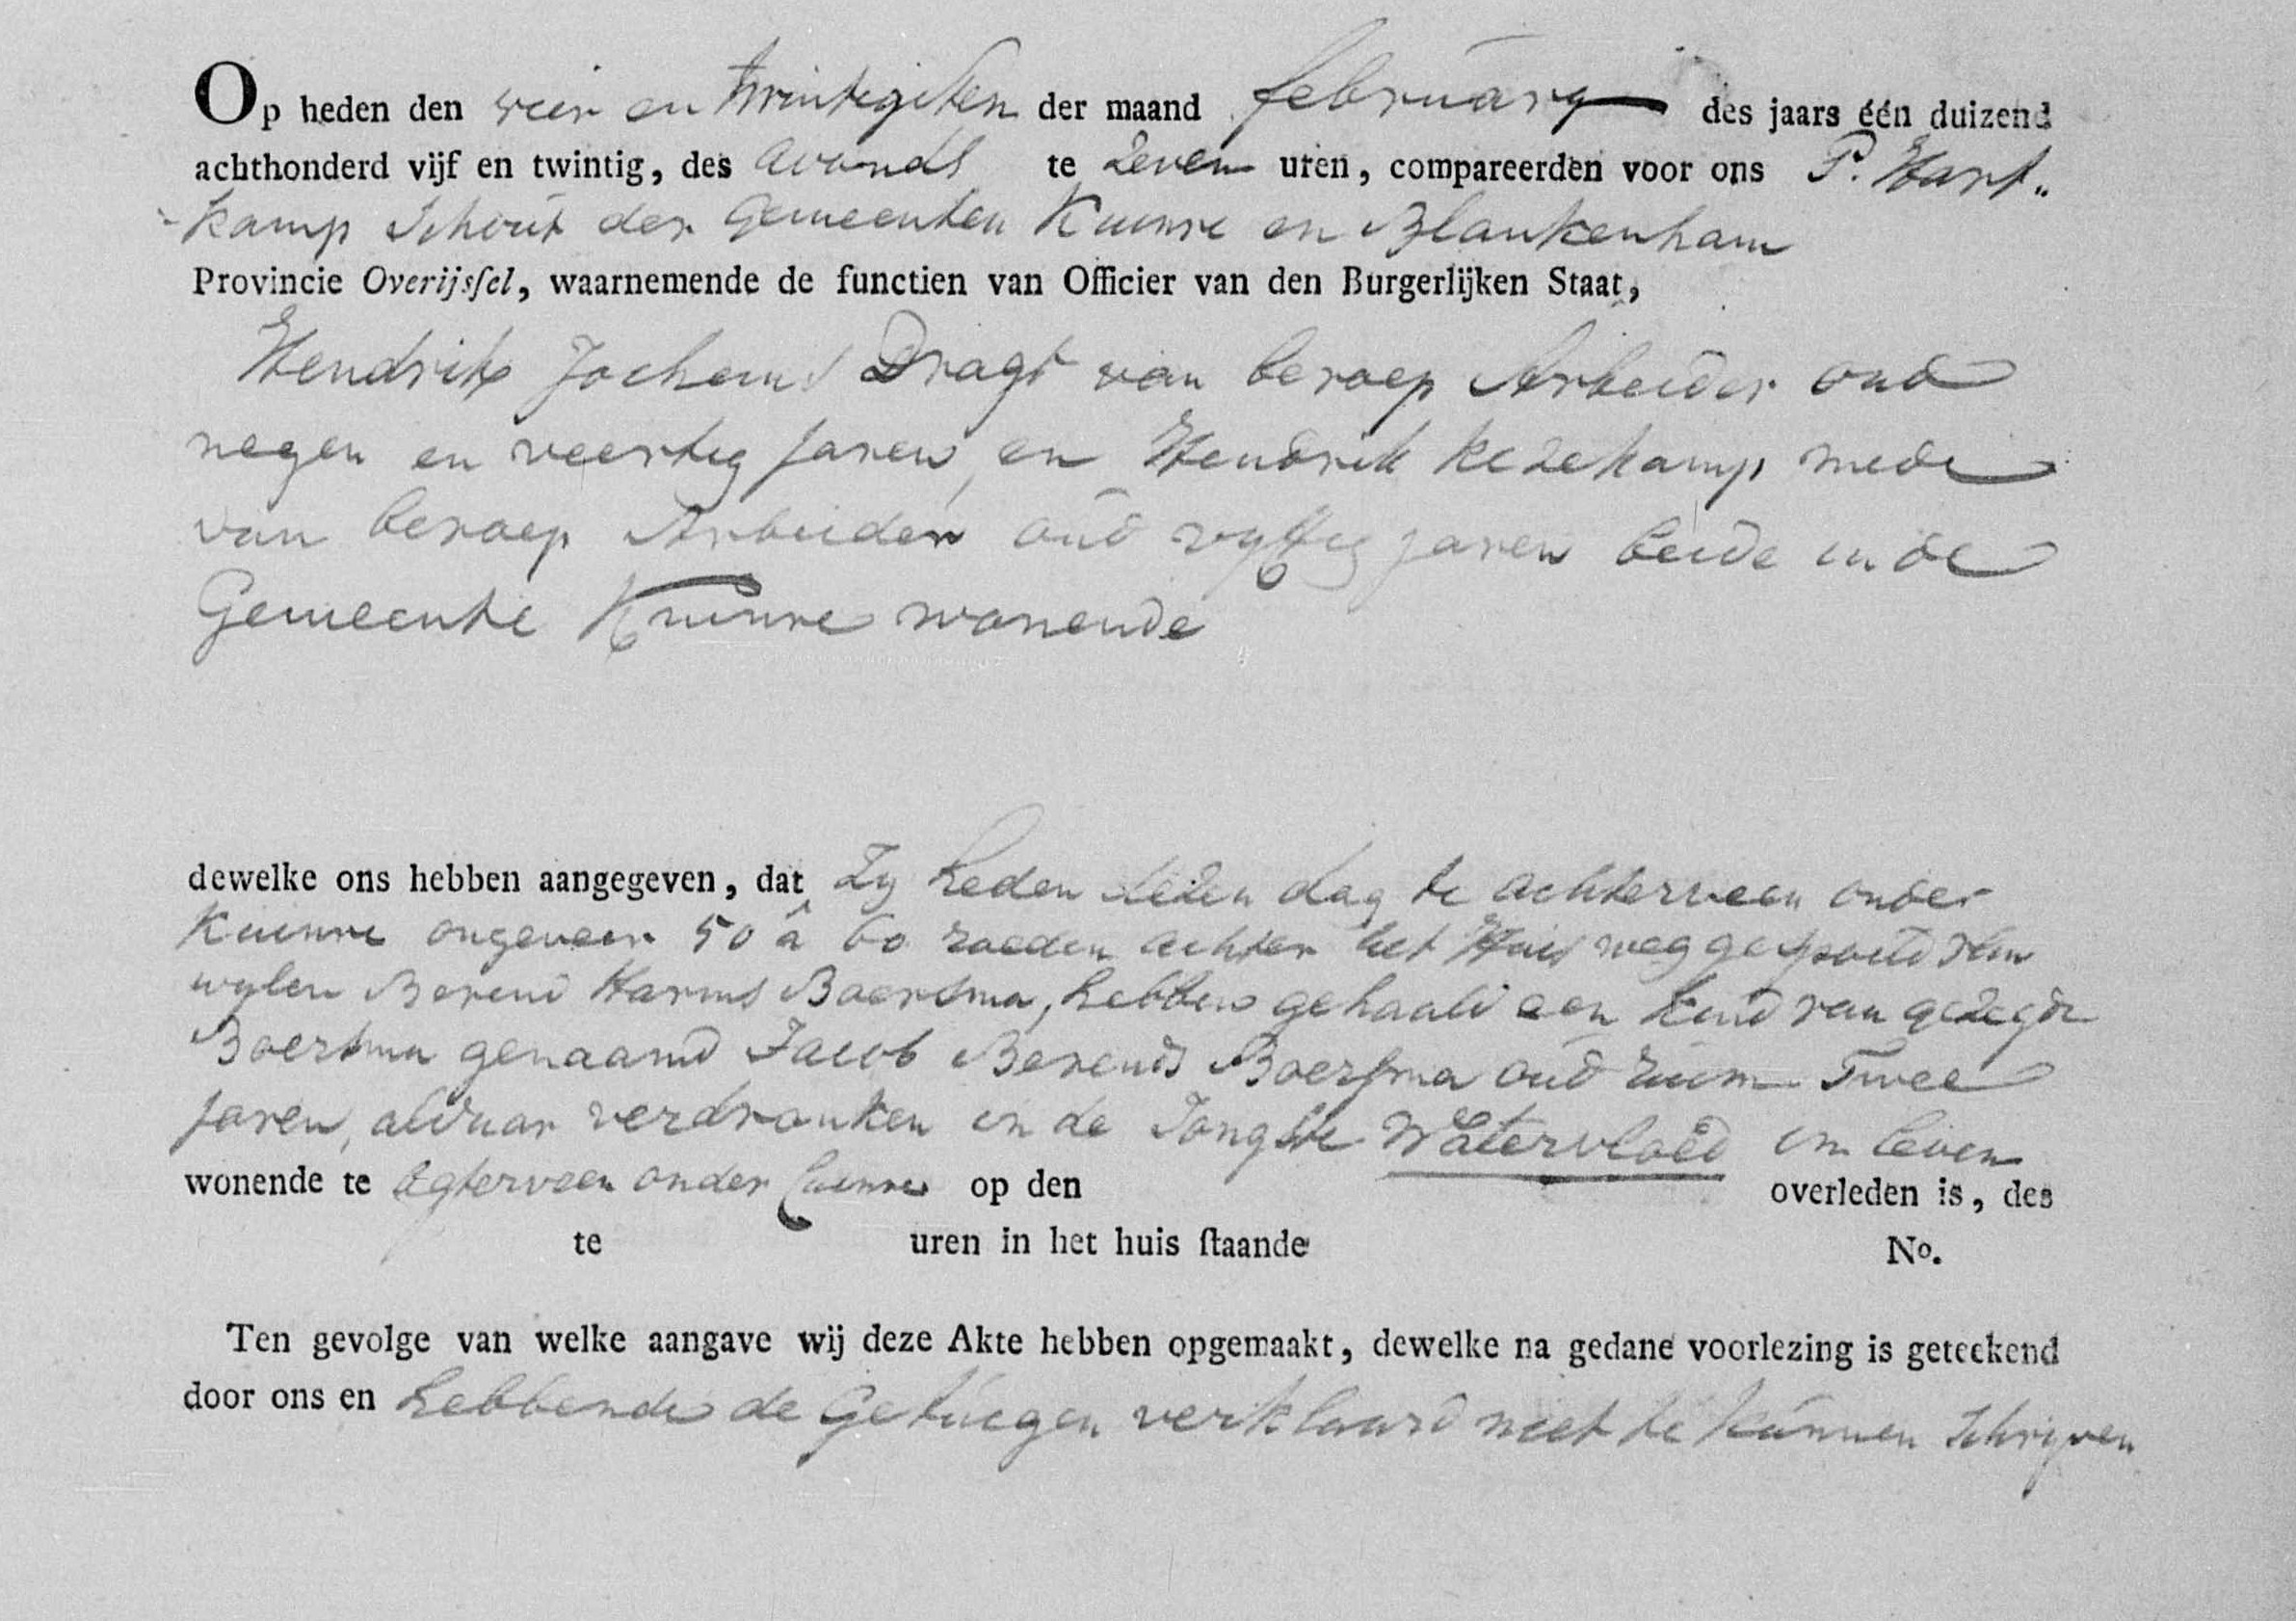 Op heden den vier en twintigsten der maand february des jaars één duizend
achthonderd vijf en twintig, des avonds te zeven uren, compareerden voor ons P. Hart„
-kamp Schout der Gemeenten Kuinre en Blankenham
Provincie Overijsſel, waarnemende de functien van Officier van den Burgerlijken Staat,
Hendrik Jochems Dragt van beroep Arbeider oud
negen en veertig jaren, en Hendrik Kezekamp mede
van beroep Arbeider oud vyftig jaren beide in de
Gemeente Kuinre wonende
dewelke ons hebben aangegeven, dat Zy heden dezen dag te achterveen onder
Kuinre ongeveer 50 â 60 roeden achter het Huis weggespoeld van
wylen Berend Harms Boersma, hebben gehaald een kind van gezegde
Boersma genaamd Jacob Berends Boersma oud ruim Twee
jaren, aldaar verdronken in de Jongste Watervloed in leven
wonende te Agterveen onder Cuinre op den overleden is, des
te uren in het huis ſtaande No.
Ten gevolge van welke aangave wij deze Akte hebben opgemaakt, dewelke na gedane voorlezing is geteekend
door ons en hebbende de Getuigen verklaard niet te kunnen Schryven